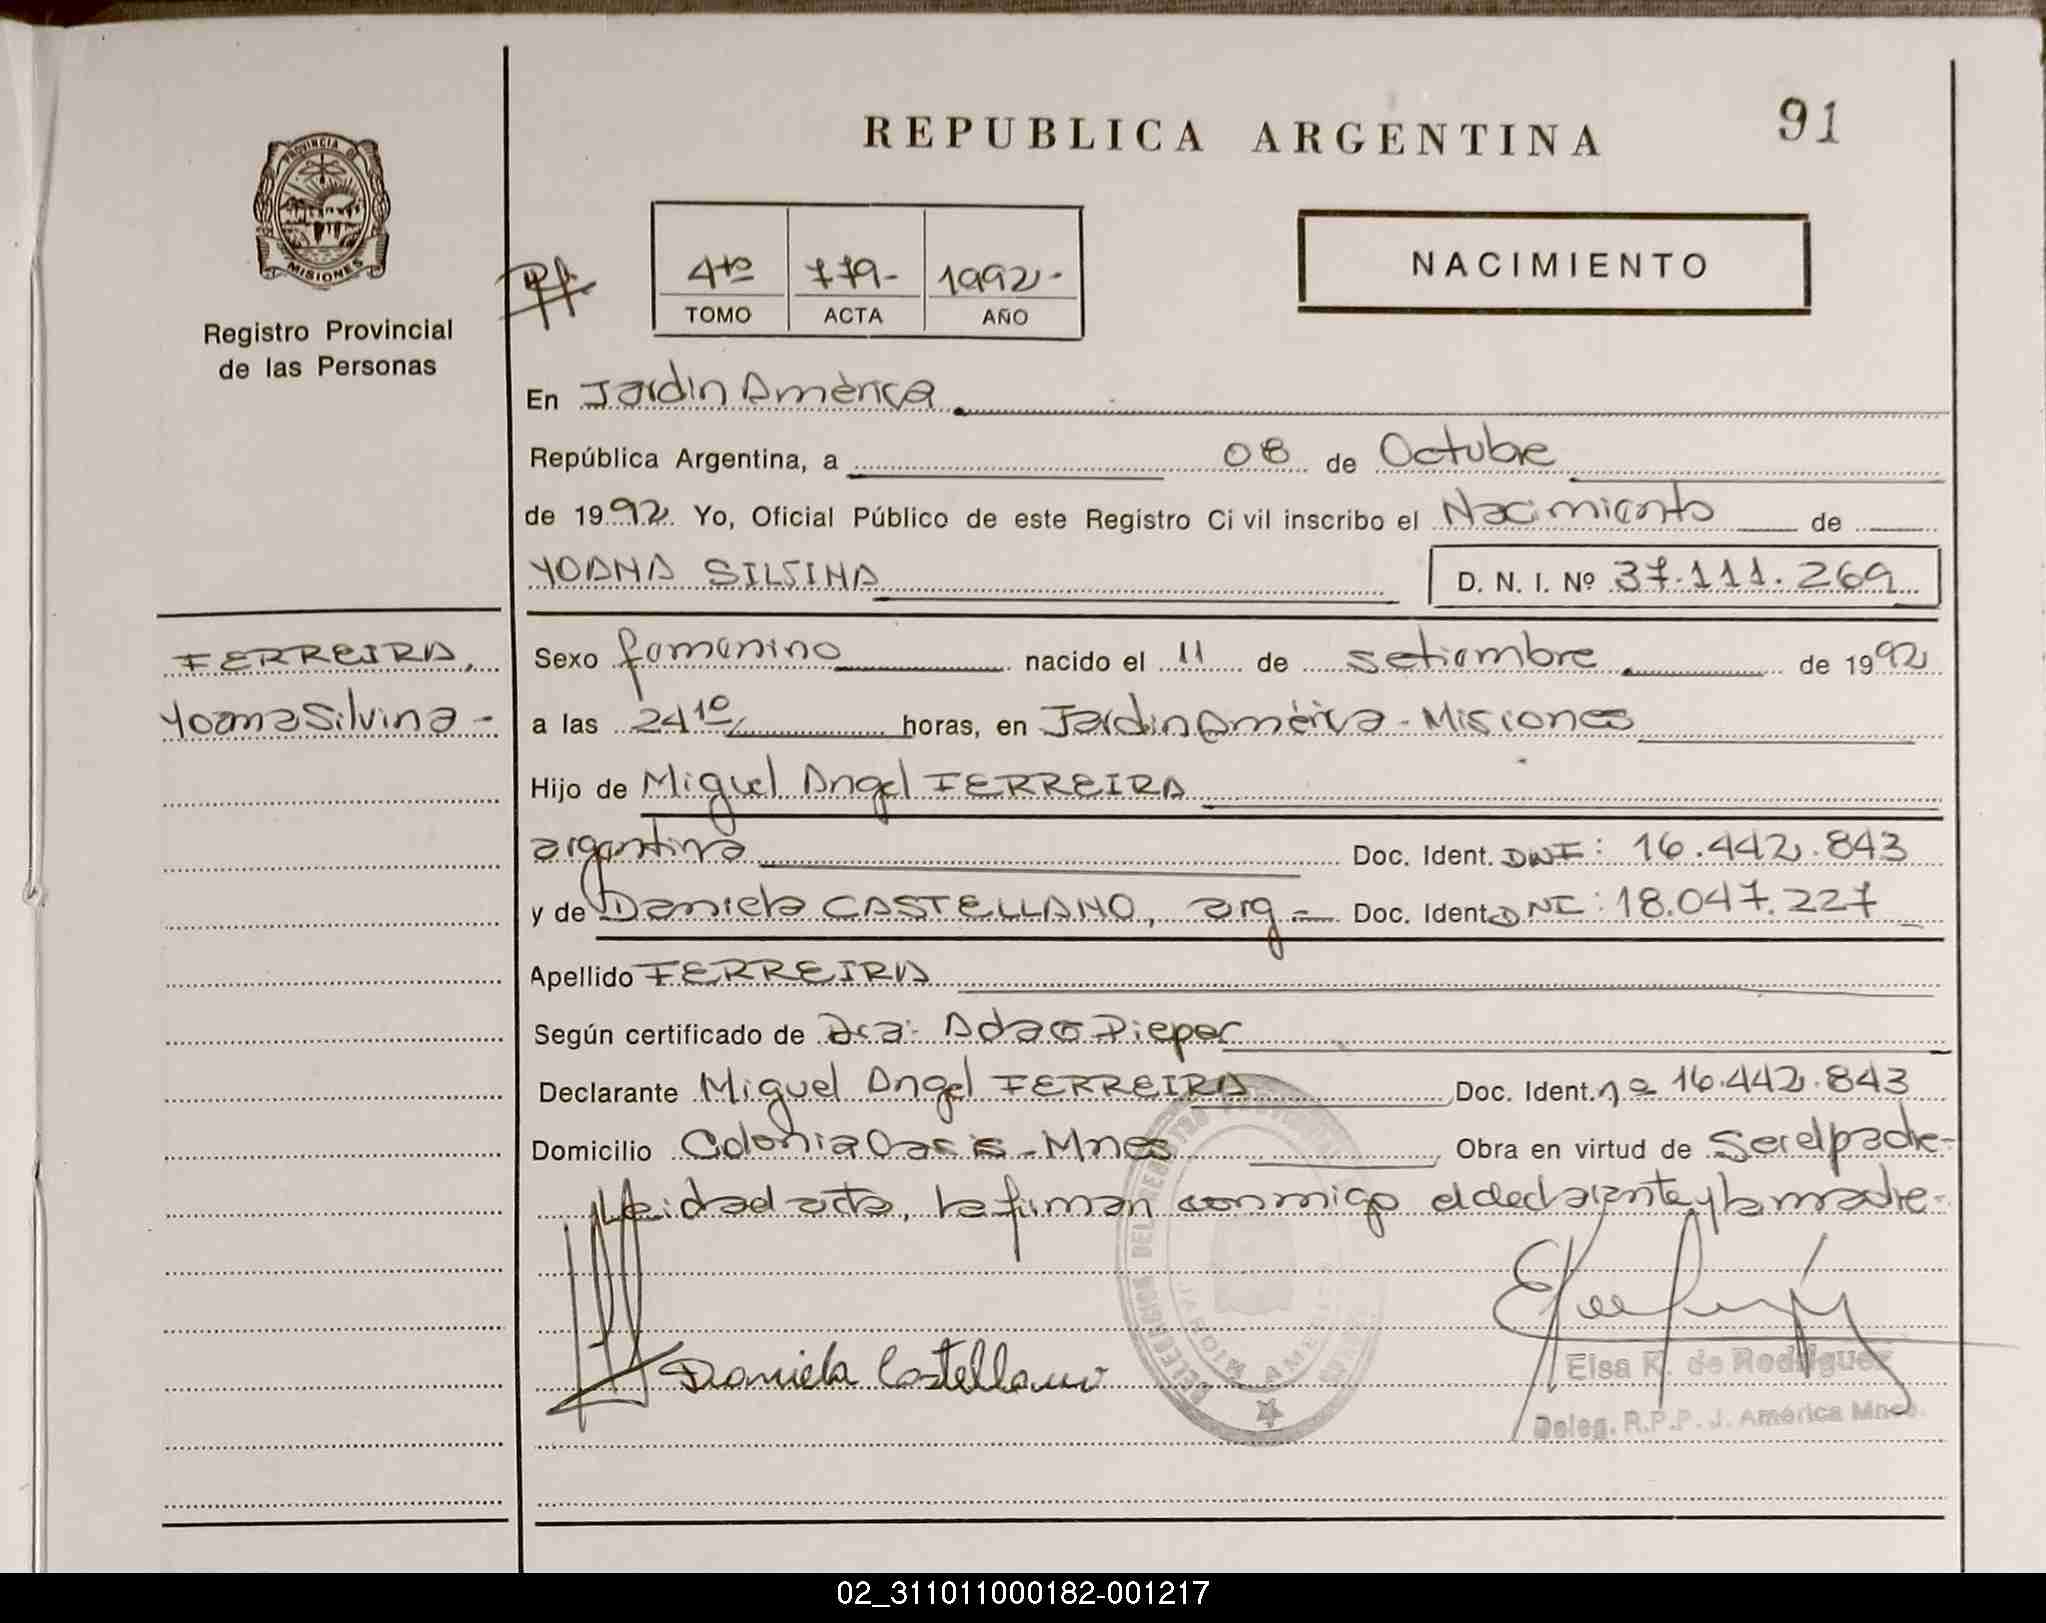 REPUBLICA ARGENTINA
91
PROVINCIA DE
MISIONES
Registro Provincial
de las Personas
4to 779- 1992-
TOMO ACTA AÑO
NACIMIENTO
En Jardin América
República Argentina, a 08 de Octubre
de 1992. Yo, Oficial Público de este Registro Civil inscribo el Nacimiento de
YOANA SILVINA D. N. I. Nº 37.111.269
FERREIRA,
Yoana Silvina -
Sexo femenino nacido el 11 de setiembre de 1992
a las 24 10 horas, en Jardin América - Misiones
Hijo de Miguel Angel FERREIRA
argentina Doc. Ident. DNI: 16.442.843
y de Daniela CASTELLANO, arg - Doc. Ident DNI: 18.047.227
Apellido FERREIRA
Según certificado de Dra: Adao Pieper
Declarante Miguel Angel FERREIRA Doc. Ident. nº 16.442.843
Domicilio Colonia Oasis - Mnes Obra en virtud de Ser el padre-
Leida el acta, la firman conmigo el declarante y la madre-
Daniela Castellano
JARDIN AMERICA
Elsa K. de Rodriguez
Deleg. R.P.P. J. América Mnes.
02_311011000182-001217